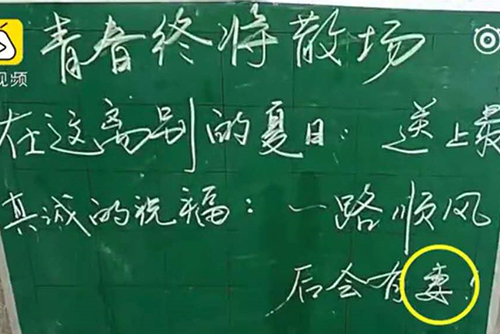 青春终将散场
在这离别的夏日：送上最
真诚的祝福：一路顺风
后会有妻！
视频